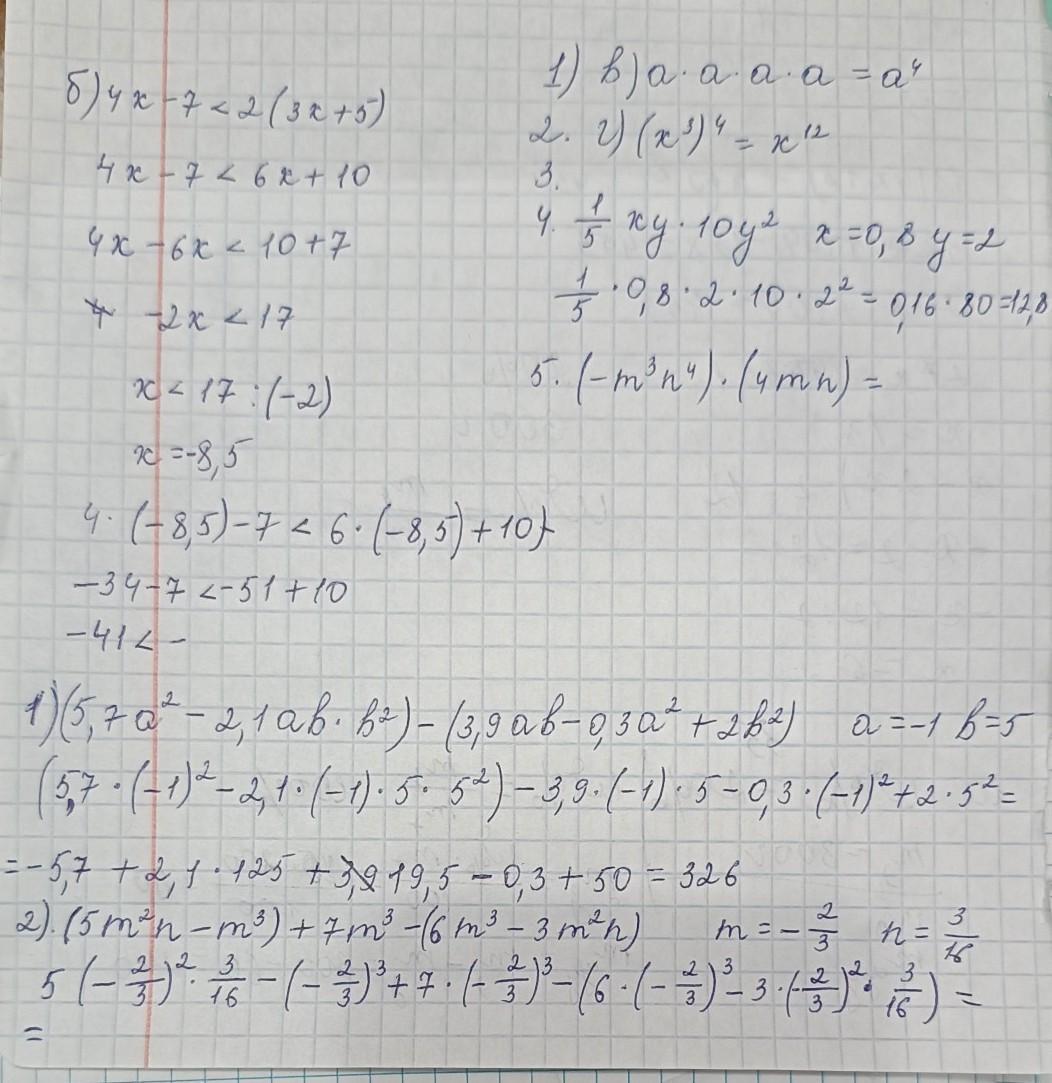 б) 4x - 7 < 2 (3x + 5)
4x - 7 < 6x + 10
4x - 6x < 10 + 7
-2x < 17
x < 17 : (-2)
x = -8,5
4 · (-8,5) - 7 < 6 · (-8,5) + 10
-34 - 7 < -51 + 10
-41 < -
1) в) a · a · a · a = a⁴
2. г) (x³)⁴ = x¹²
3.
4. 1/5 xy · 10y² x = 0,8 y = 2
1/5 · 0,8 · 2 · 10 · 2² = 0,16 · 80 = 12,8
5. (-m³n⁴) · (4mn) =
1) (5,7a² - 2,1ab · b²) - (3,9ab - 0,3a² + 2b²) a = -1 b = 5
(5,7 · (-1)² - 2,1 · (-1) · 5 · 5²) - 3,9 · (-1) · 5 - 0,3 · (-1)² + 2 · 5² =
= -5,7 + 2,1 · 125 + 19,5 - 0,3 + 50 = 326
2). (5m²n - m³) + 7m³ - (6m³ - 3m²n) m = -2/3 n = 3/16
5 (-2/3)² · 3/16 - (-2/3)³ + 7 · (-2/3)³ - (6 · (-2/3)³ - 3 · (-2/3)² · 3/16) =
=